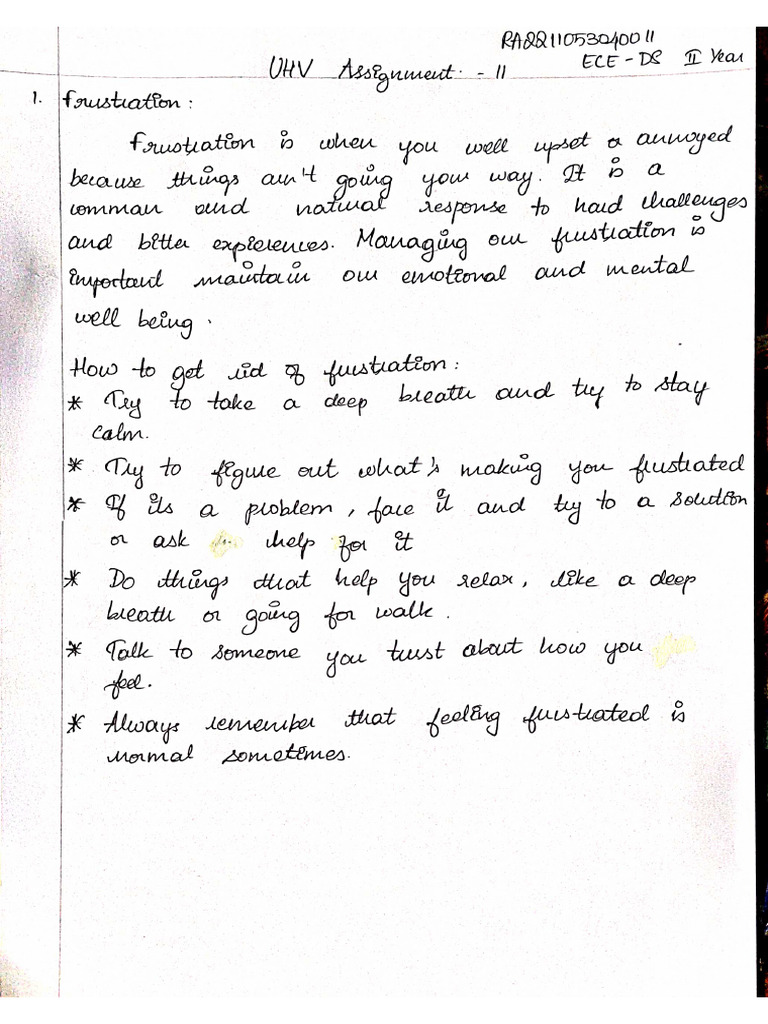 RA2211053040011
ECE - DS II Year
UHV Assignment - II
1. Frustration :
Frustration is when you well upset or annoyed
because things ain't going your way. It is a
common and natural response to hard challenges
and bitter expierences. Managing our frustration is
important maintain our emotional and mental
well being .
How to get rid of frustration :
* Try to take a deep breath and try to stay
calm.
* Try to figure out what's making you frustrated
* If its a problem , face it and try to a solution
or ask help for it
* Do things that help you relax, like a deep
breath or going for walk .
* Talk to someone you trust about how you
feel.
* Always remember that feeling frustrated is
normal sometimes.